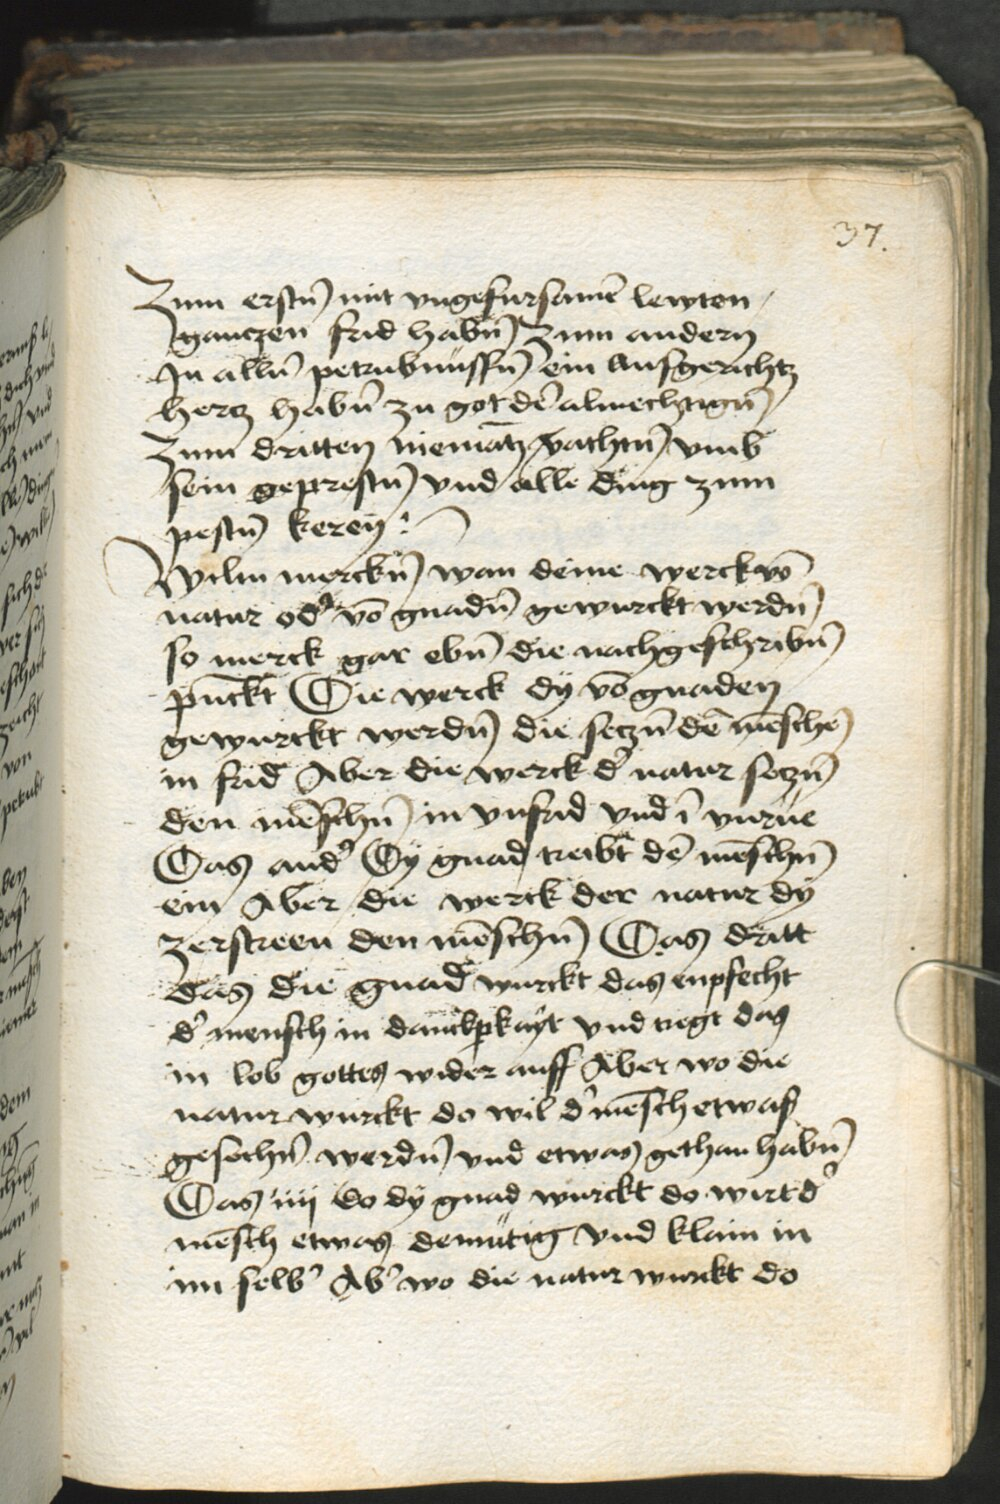 37.
Zum erstn̄ mit vngehursamē lewten
ganczen frid habn̄ Zum andern
In alln̄ petrubnüssn̄ ein aufgerichtz
hercz habn̄ zu got dē almechtign̄
Zum dritten niemātz vachtn̄ vmb
sein geprestn̄ vnd alle ding zum
pestn̄ keren :
Wilm merckn̄ wan deine werck vō
natur od' vō gnadn̄ gewurckt werdn̄
so merck gar ebn̄ die nachgeschribn̄
pūckt Die werck dÿ vō gnaden
gewurckt werdn̄ die seczn̄ dē mēschē
in frid Aber die werck d' natur seczn̄
den mēschn̄ in vnfrid vnd ī vnrüe
Das and' Dÿ gnad treibt dē mēschn̄
ein Aber die werck der natur dÿ
zerstreen den mēschn̄ Das dritt
das die gnad wurckt das enpfecht
d' mensch in danckpkayt vnd tregt das
in lob gottes wider auff Aber wo die
natur wurckt do wil d' mēsch etwas
gesechn̄ werdn̄ vnd etwas gethan habn̄
Das iiij do dÿ gnad wurckt do wirt d'
mēsch etwas demütig vnd klain in
im selb' Ab' wo die natur wurckt do